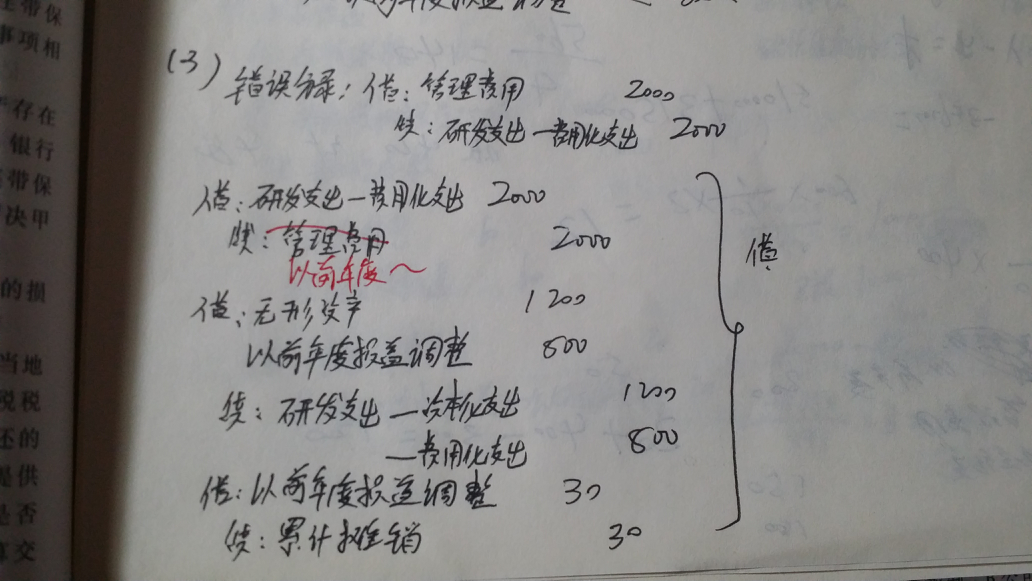 (3) 错误分录:借:管理费用 2000
贷:研发支出—费用化支出 2000
借:研发支出—费用化支出 2000
贷:管理费用 2000
以前年度～
借:无形资产 1200
以前年度损益调整 800
贷:研发支出—资本化支出 1200
—费用化支出 800
借:以前年度损益调整 30
贷:累计摊销 30
借
在带保
事项相
存在
银行
带保
决甲
的损
当地
税税
还的
是供
是否
交